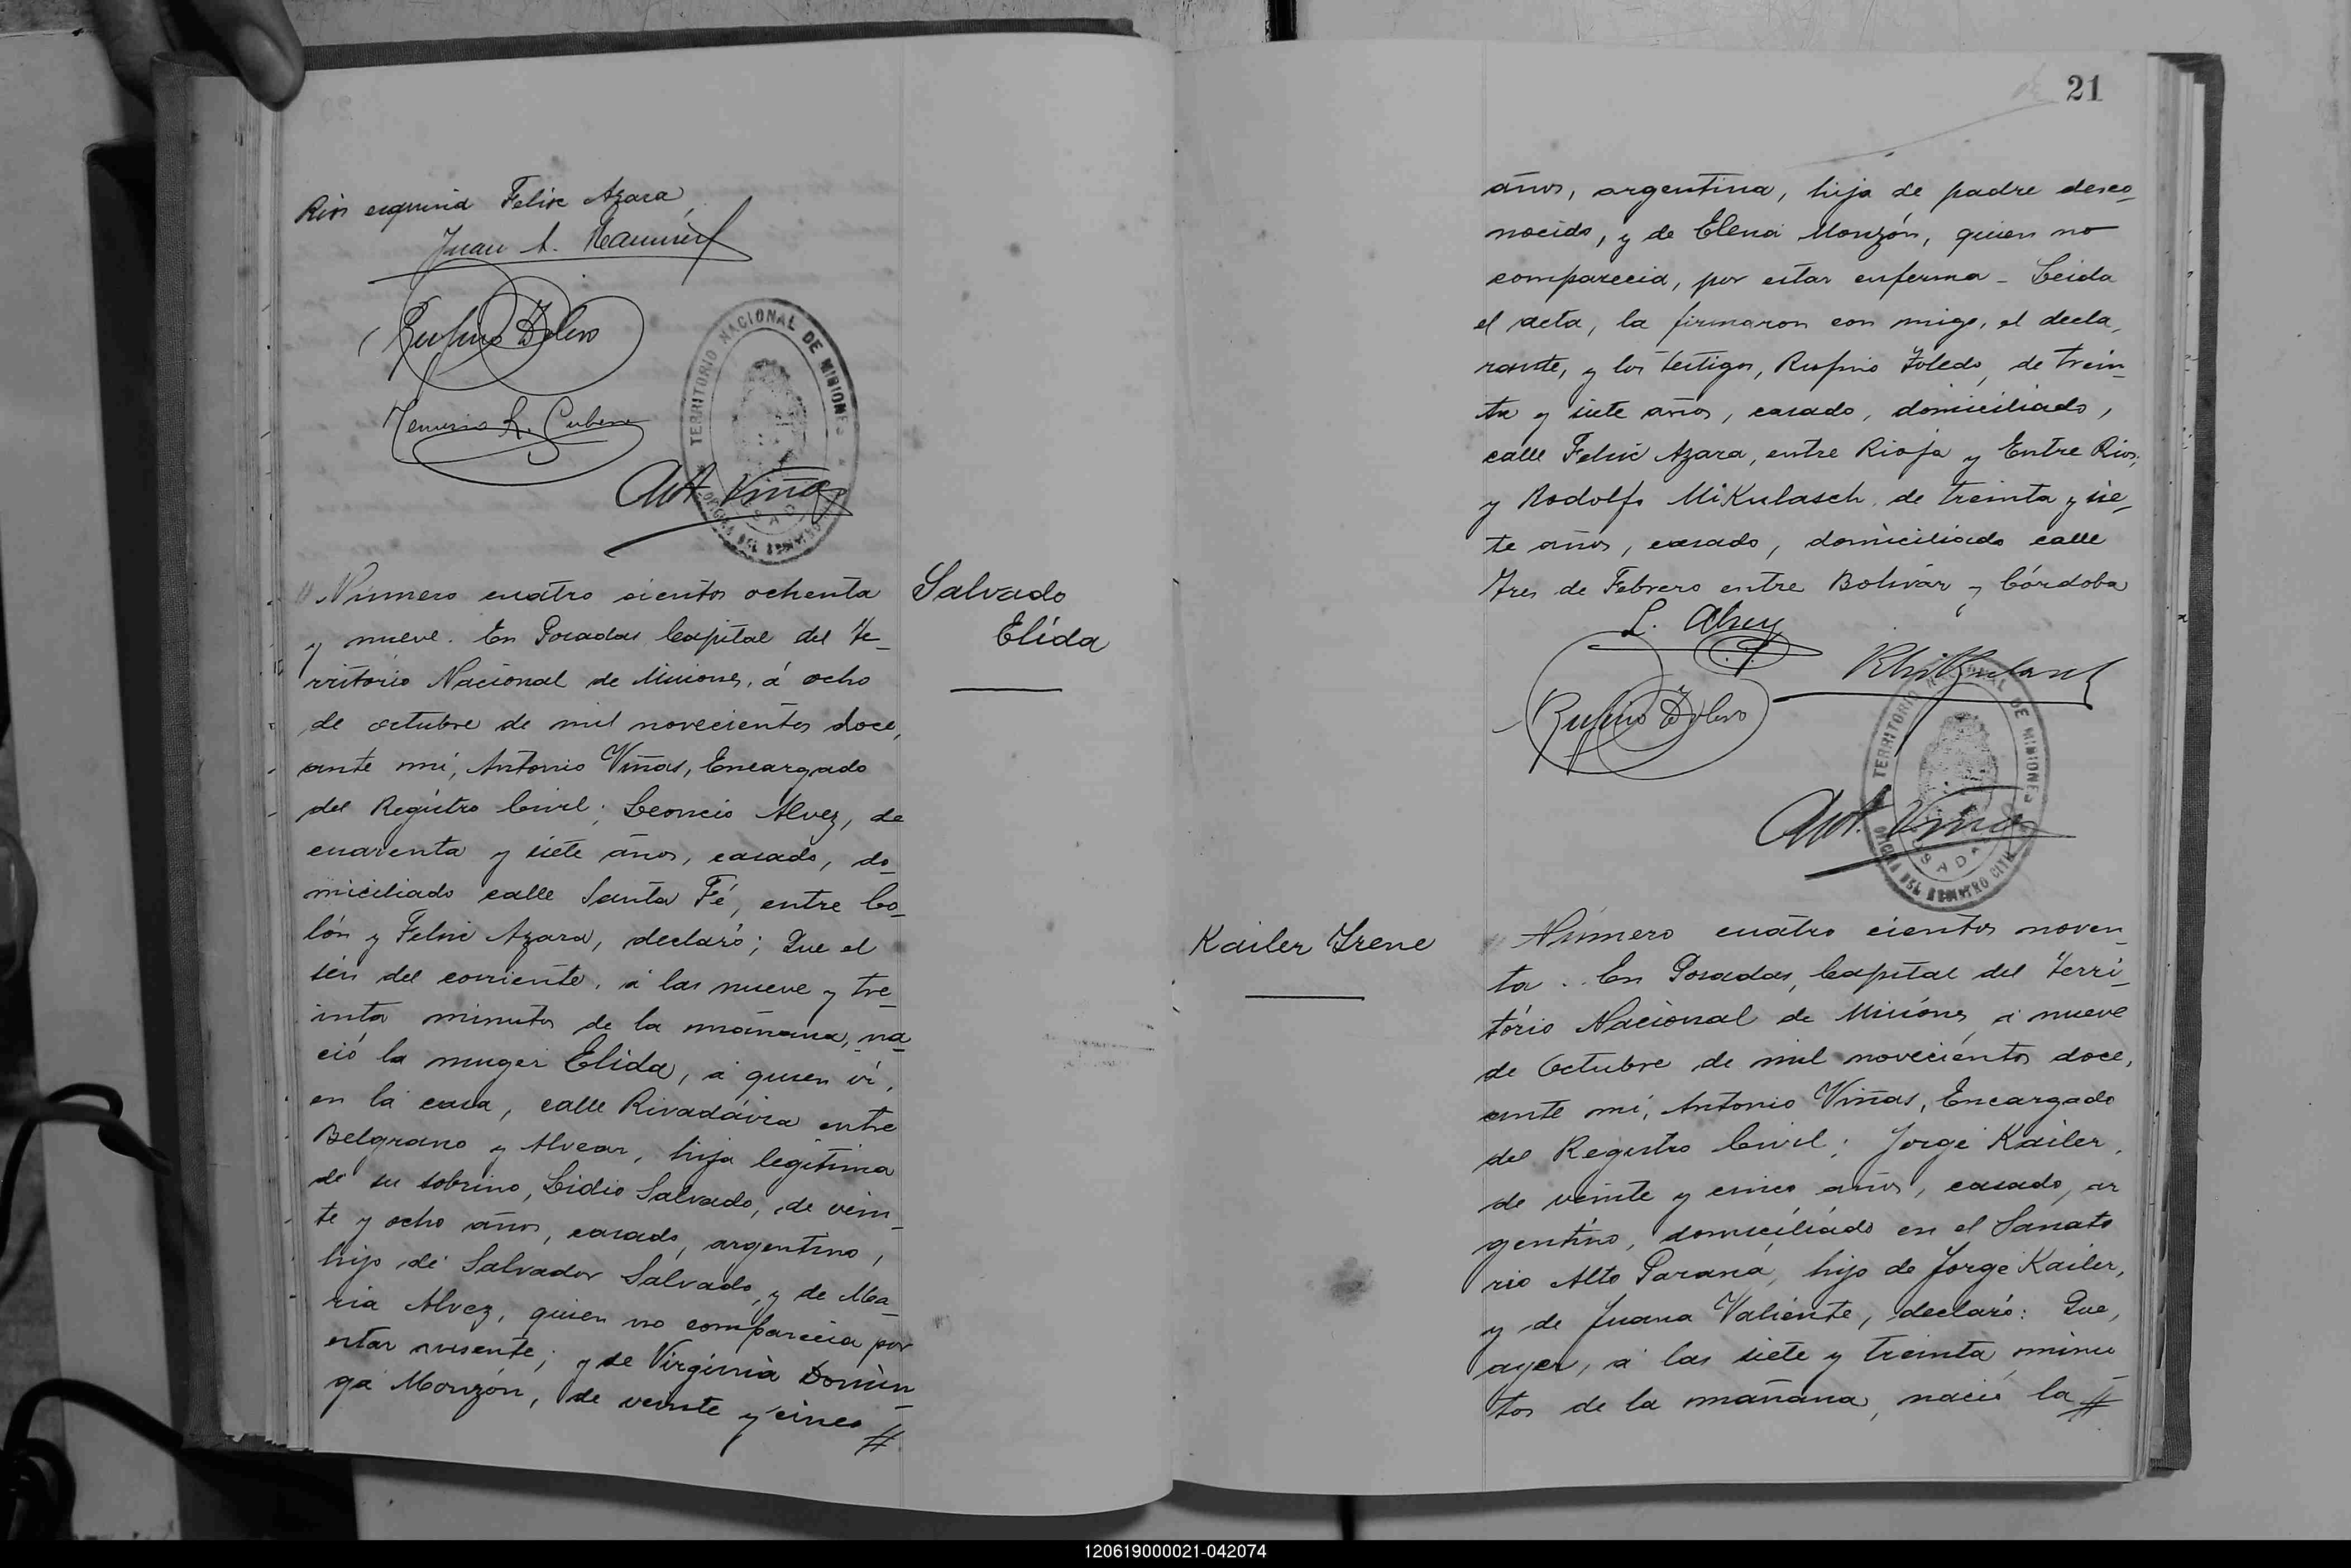 Rios esquina Felix Azara,
Juan A. Ramírez
Rufino Toledo
R. Cubero
Ant. Viñas
TERRITORIO NACIONAL DE MISIONES
OFICINA DEL REGISTRO CIVIL
POSADAS
Salvado
Elida
Número cuatro sientos ochenta
y nueve. En Posadas Capital del Te-
rritorio Nacional de Misiones, á ocho
de octubre de mil novecientos doce,
ante mi, Antonio Viñas, Encargado
del Registro Civil; Leoncio Alvez, de
cuarenta y siete años, casado, do-
miciliado calle Santa Fé, entre Co-
lón y Felix Azara, declaró; Que el
seis del corriente, á las nueve y tre-
inta minutos de la mañana, na-
ció la muger Elida, á quien vi,
en la casa, calle Rivadávia entre
Belgrano y Alvear, hija legitima
de su sobrino, Lidio Salvado, de vein-
te y ocho años, casado, argentino,
hijo de Salvador Salvado, y de Ma-
ria Alvez, quien no comparecia por
estar ausente; y de Virginia Domin-
ga Monzón, de veinte y cinco #
21
años, argentina, hija de padre desco-
nocido, y de Elena Monzón, quien no
comparecia, por estar enferma - Leida
el acta, la firmaron con migo, el decla-
rante, y los testigos, Rufino Toledo, de trein-
ta y siete años, casado, domiciliado,
calle Felix Azara, entre Rioja y Entre Rios,
y Rodolfo Mikulasch, de treinta y sie-
te años, casado, domiciliado calle
Tres de Febrero entre Bolivar y Córdoba
L. Alvez
Rufino Toledo
Ant. Viñas
TERRITORIO NACIONAL DE MISIONES
OFICINA DEL REGISTRO CIVIL
POSADAS
Kailer Irene
Número cuatro cientos noven-
ta. En Posadas, Capital del Terri-
tório Nacional de Misiónes, á nueve
de Octubre de mil novecientos doce,
ante mi, Antonio Viñas, Encargado
del Registro Civil; Jorge Kailer,
de veinte y cinco años, casado, ar
gentino, domiciliado en el Sanato
rio Alto Paraná, hijo de Jorge Kailer,
y de Juana Valiente, declaró: Que,
ayer, á las siete y treinta minu-
tos de la mañana, nació la #
120619000021-042074